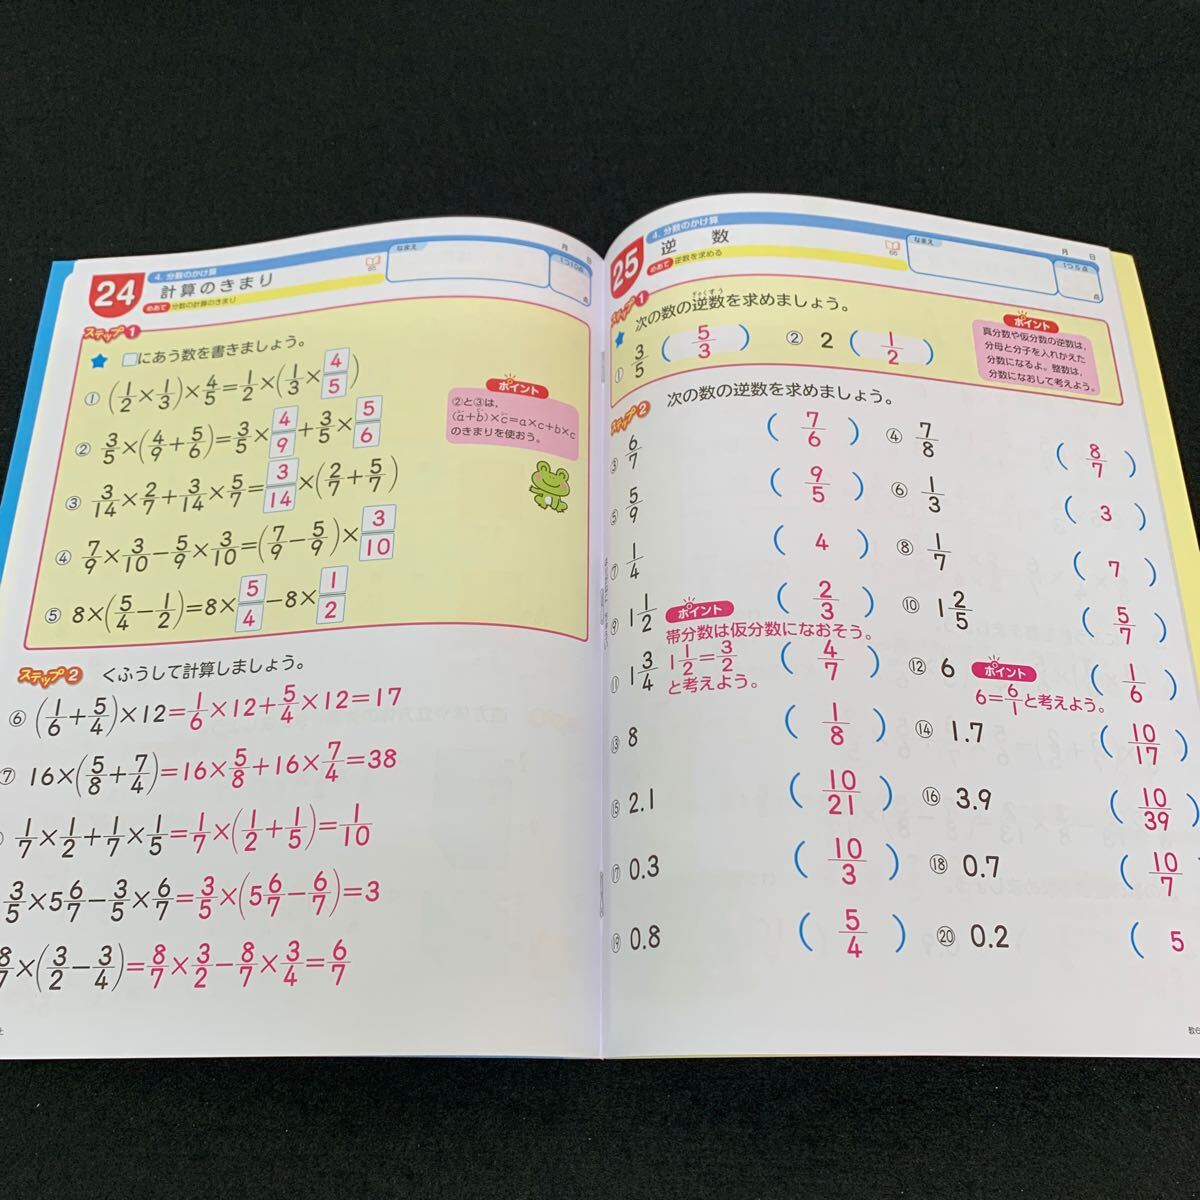 24
4. 分数のかけ算
計算のきまり
めあて 分数の計算のきまり
66
なまえ
月 日
1つ10点
点
ステップ1
★ □にあう数を書きましょう。
① (1/2×1/3)×4/5=1/2×(1/3×4/5)
② 3/5×(4/9+5/6)=3/5×4/9+3/5×5/6
③ 3/14×2/7+3/14×5/7=3/14×(2/7+5/7)
④ 7/9×3/10-5/9×3/10=(7/9-5/9)×3/10
⑤ 8×(5/4-1/2)=8×5/4-8×1/2
ポイント
②と③は、
(a+b)×c=a×c+b×c
のきまりを使おう。
ステップ2 くふうして計算しましょう。
⑥ (1/6+5/4)×12=1/6×12+5/4×12=17
⑦ 16×(5/8+7/4)=16×5/8+16×7/4=38
1/7×1/2+1/7×1/5=1/7×(1/2+1/5)=1/10
3/5×5 6/7-3/5×6/7=3/5×(5 6/7-6/7)=3
8/7×(3/2-3/4)=8/7×3/2-8/7×3/4=6/7
25
4. 分数のかけ算
逆 数
めあて 逆数を求める
66
なまえ
月 日
1つ5点
点
ステップ1
★ 次の数の逆数を求めましょう。
ぎゃくすう
① 3/5 (5/3) ② 2 (1/2)
ポイント
真分数や仮分数の逆数は、
分母と分子を入れかえた
分数になるよ。整数は、
分数になおして考えよう。
ステップ2 次の数の逆数を求めましょう。
③ 6/7 (7/6) ④ 7/8 (8/7)
⑤ 5/9 (9/5) ⑥ 1/3 (3)
⑦ 1/4 (4) ⑧ 1/7 (7)
⑨ 1 1/2 (2/3) ⑩ 1 2/5 (5/7)
ポイント
帯分数は仮分数になおそう。
1 1/2=3/2
と考えよう。
⑪ 1 3/4 (4/7) ⑫ 6 (1/6)
ポイント
6=6/1と考えよう。
⑬ 8 (1/8) ⑭ 1.7 (10/17)
⑮ 2.1 (10/21) ⑯ 3.9 (10/39)
⑰ 0.3 (10/3) ⑱ 0.7 (10/7)
⑲ 0.8 (5/4) ⑳ 0.2 (5